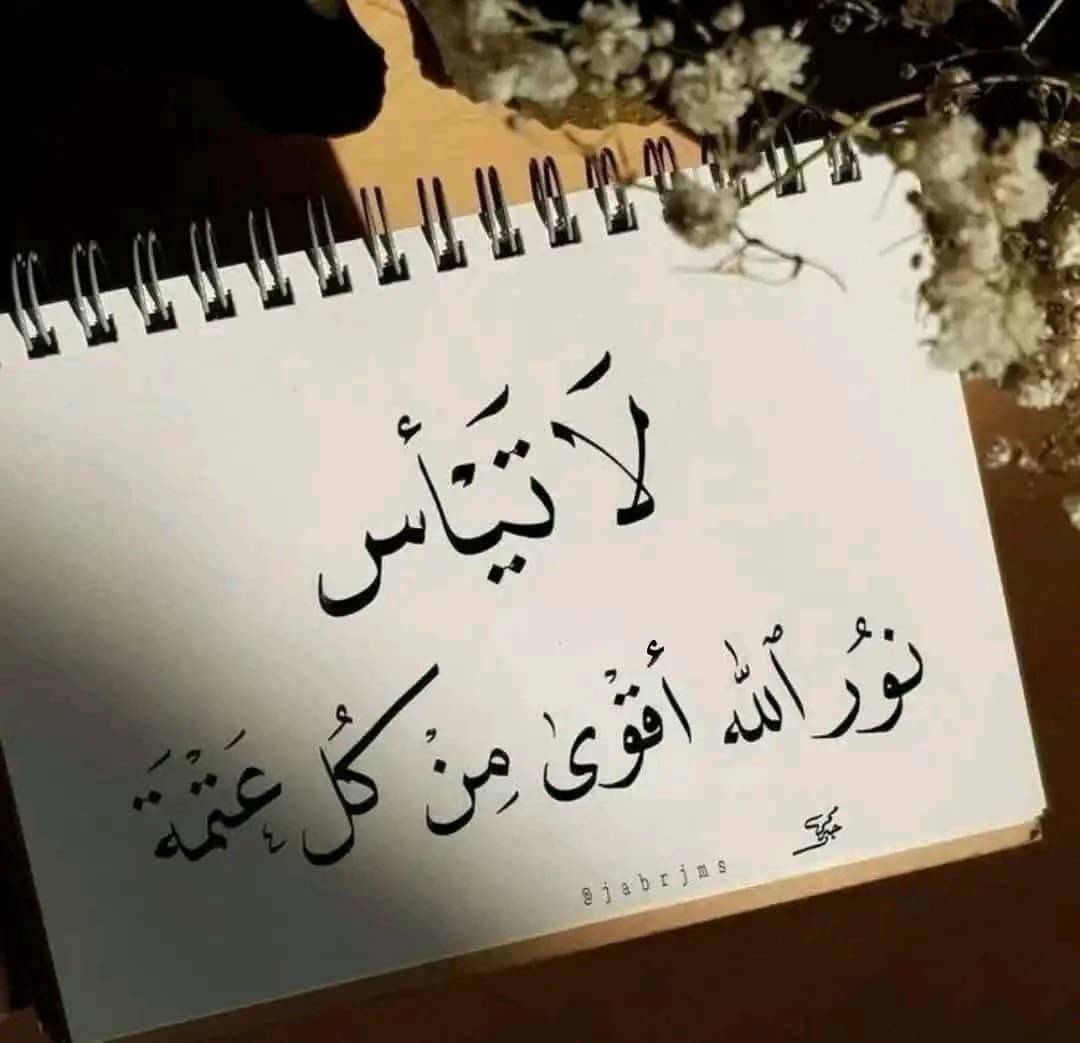 لَا تَيْأَس
نُورُ ٱللّٰه أَقْوىٰ مِنْ كُل عَتْمَة
@jabrjms